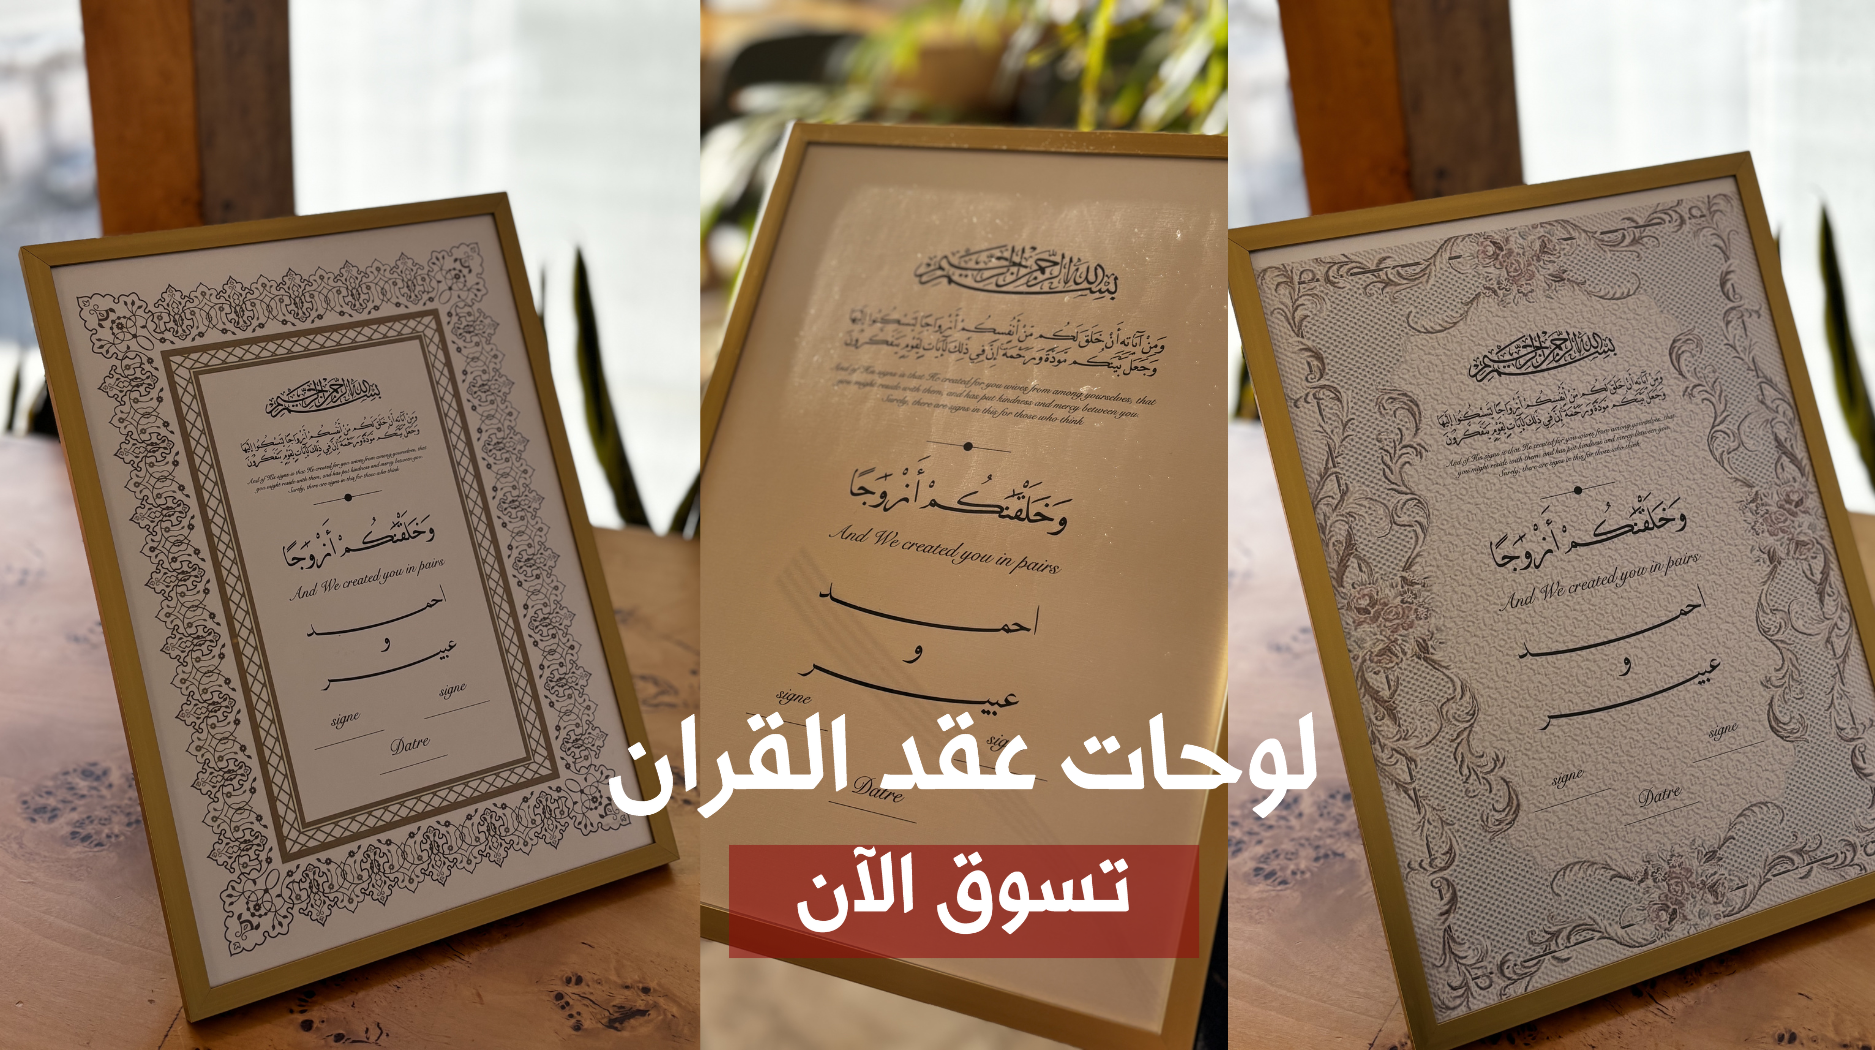 بسم الله الرحمن الرحيم
ومن آياته أن خلق لكم من أنفسكم أزواجا لتسكنوا إليها
وجعل بينكم مودة ورحمة إن في ذلك لآيات لقوم يتفكرون
And of His signs is that He created for you wives from among yourselves, that
you might reside with them, and has put kindness and mercy between you.
Surely, there are signs in this for those who think
وَخَلَقْنَٰكُمْ أَزْوَٰجًا
And We created you in pairs
احمد
و
عبير
signe
signe
Datre
بسم الله الرحمن الرحيم
ومن آياته أن خلق لكم من أنفسكم أزواجا لتسكنوا إليها
وجعل بينكم مودة ورحمة إن في ذلك لآيات لقوم يتفكرون
And of His signs is that He created for you wives from among yourselves, that
you might reside with them, and has put kindness and mercy between you.
Surely, there are signs in this for those who think
وَخَلَقْنَٰكُمْ أَزْوَٰجًا
And We created you in pairs
احمد
و
عبير
signe
sig
Datre
بسم الله الرحمن الرحيم
ومن آياته أن خلق لكم من أنفسكم أزواجا لتسكنوا إليها
وجعل بينكم مودة ورحمة إن في ذلك لآيات لقوم يتفكرون
And of His signs is that He created for you wives from among yourselves, that
you might reside with them, and has put kindness and mercy between you.
Surely, there are signs in this for those who think
وَخَلَقْنَٰكُمْ أَزْوَٰجًا
And We created you in pairs
احمد
و
عبير
signe
signe
Datre
لوحات عقد القران
تسوق الآن